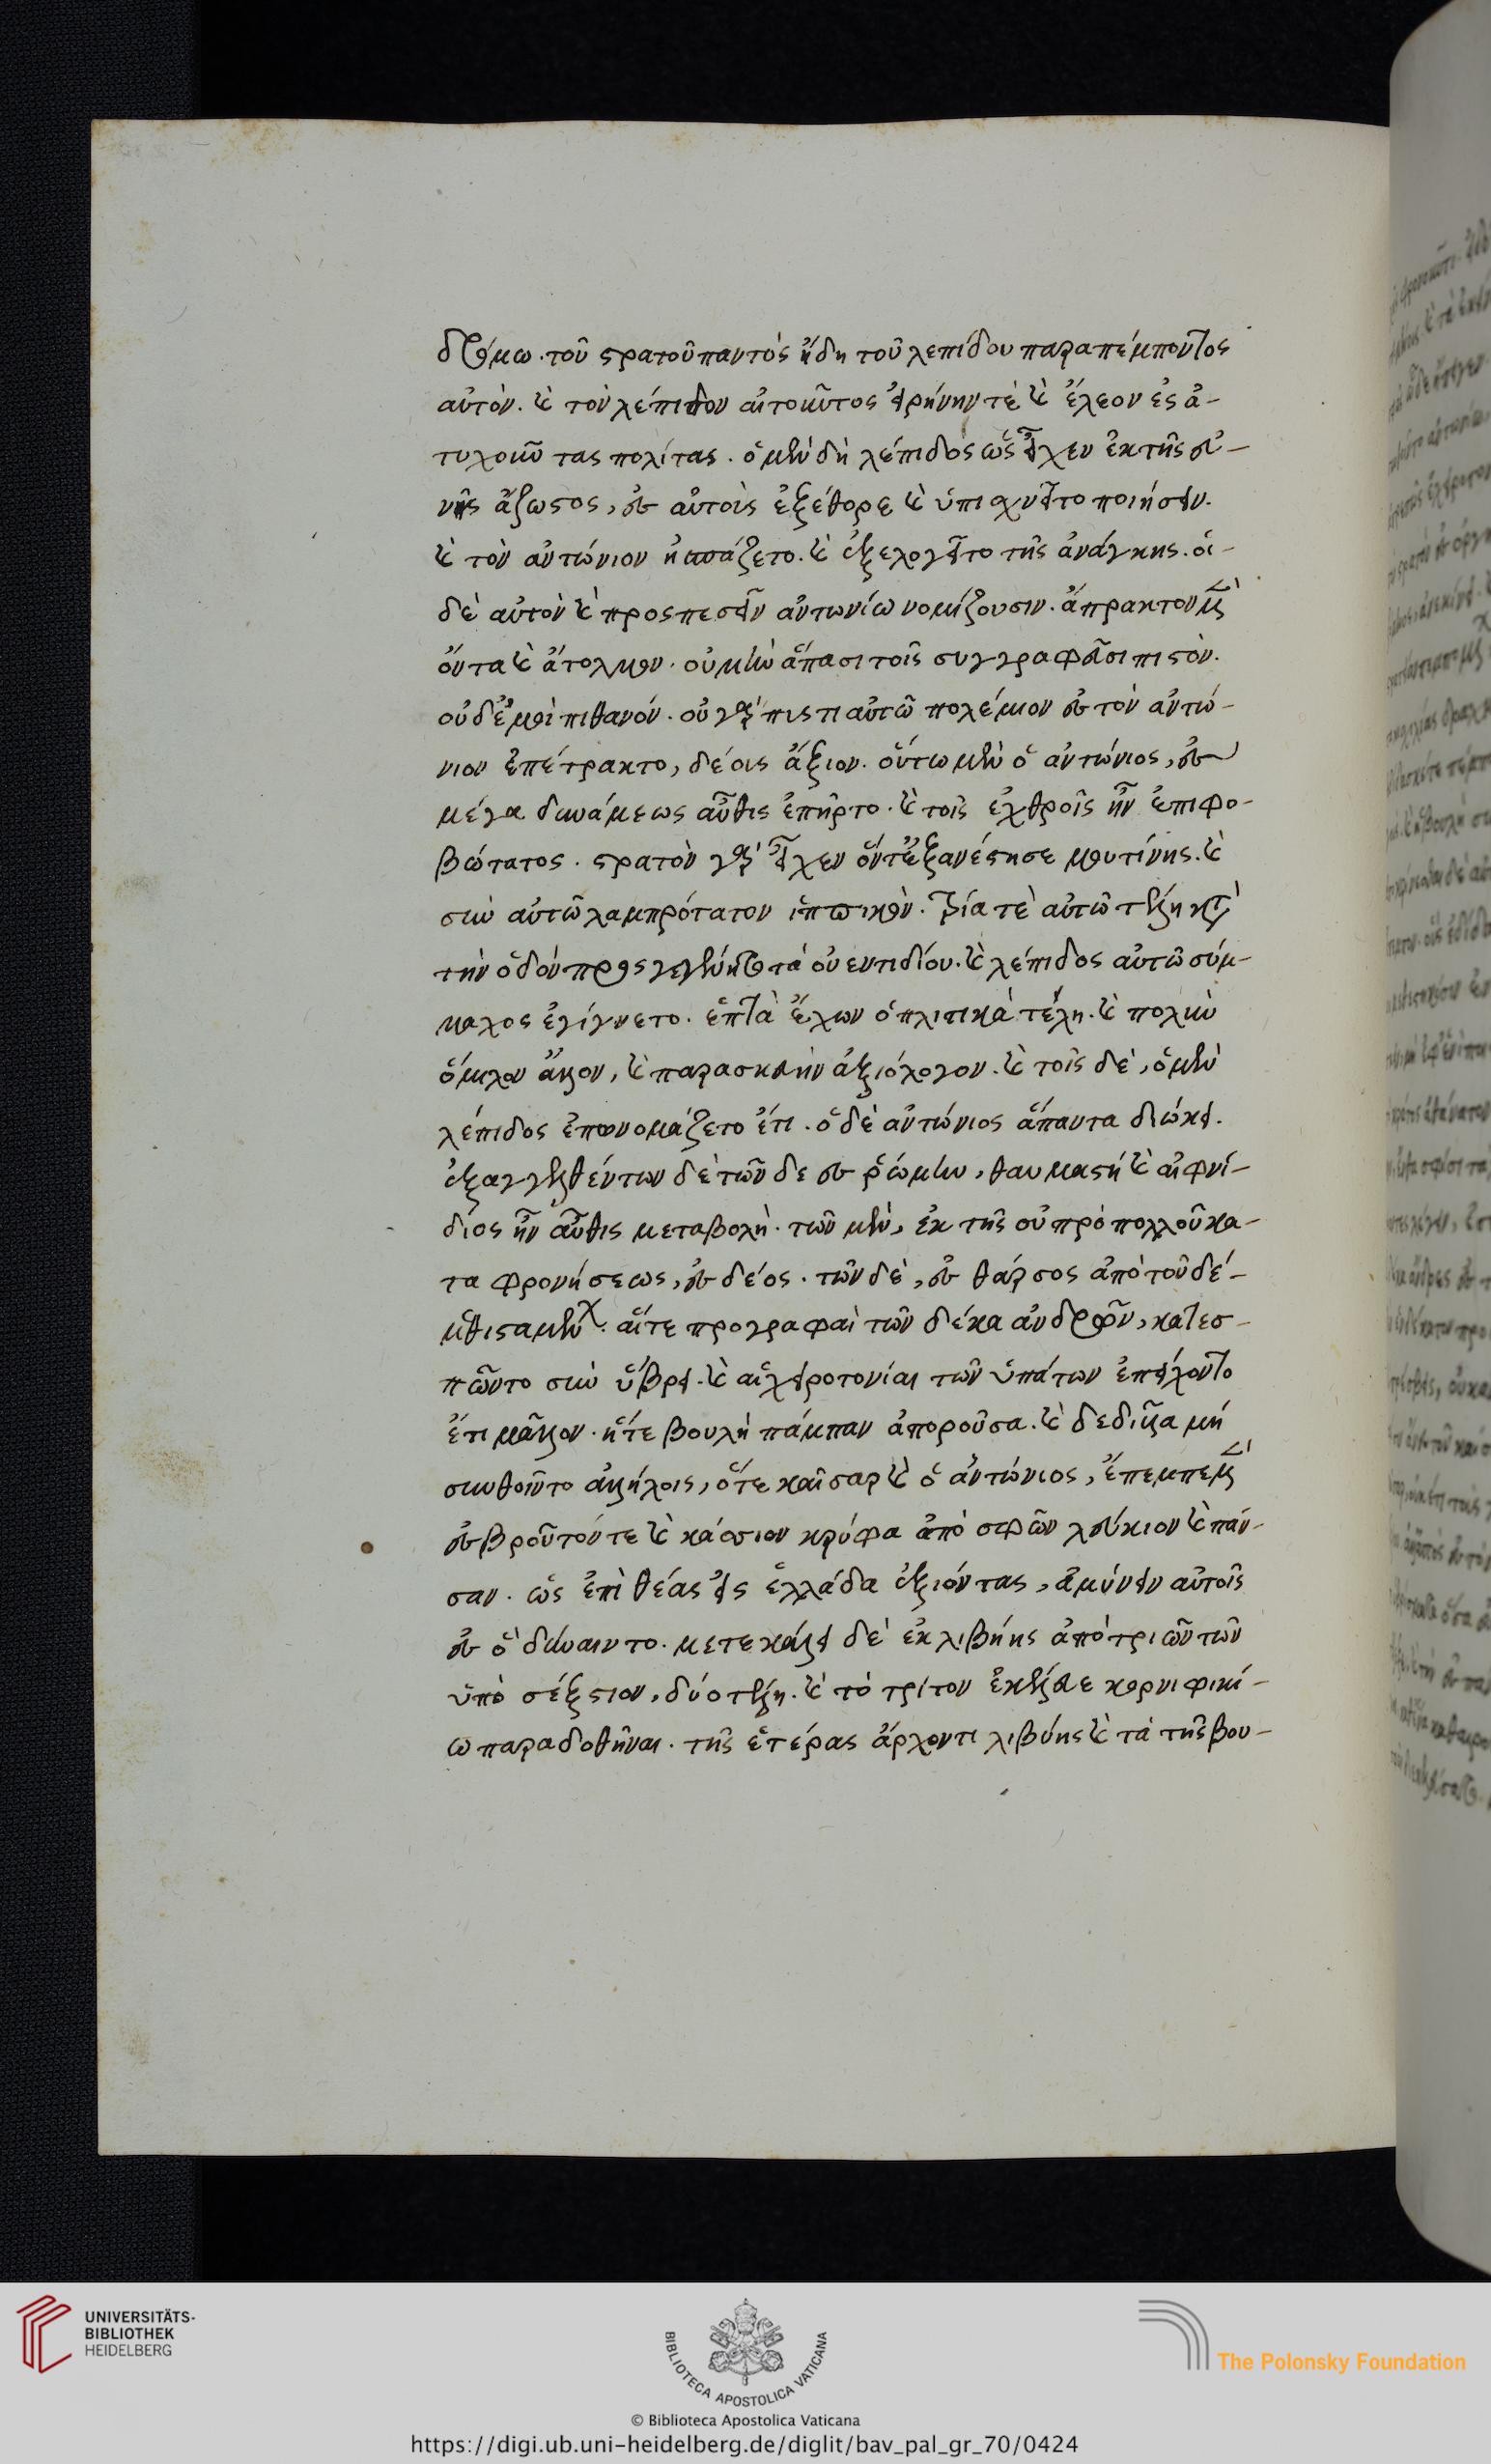 δρόμω. τοῦ στρατοῦ παντὸς ἤδη τοῦ λεπίδου παραπέμποντος
αὐτόν. καὶ τὸν λέπιδον αἰτοῦντος εἰρήνην τὲ καὶ ἔλεον ἐς ἀ-
τυχοῦντας πολίτας. ὁ μὲν δὴ λέπιδος ὡς εἶχεν ἐκ τῆς εὐ-
νῆς ἄζωστος, ἐς αὐτοὺς ἐξέθορε καὶ ὑπισχνεῖτο ποιήσειν.
καὶ τὸν αντώνιον ἠσπάζετο. καὶ ἐξελογεῖτο τῆς ἀνάγκης. οἱ-
δὲ αὐτὸν καὶ προσπεσεῖν αντωνίω νομίζουσιν. ἄπρακτον μὲν
ὄντα καὶ ἄτολμον. οὐ μὴν ἅπασι τοῖς συγγραφεῦσι πιστὸν.
οὐδ' ἐμοὶ πιθανόν. οὐ γάρ πω τι αὐτῶ πολέμιον ἐς τὸν αντώ-
νιον ἐπέπρακτο, δέους ἄξιον. οὕτω μὲν ὁ αντώνιος, ἐς
μέγα δυνάμεως αὖθις ἐπῆρτο. καὶ τοῖς ἐχθροῖς ἦν ἐπιφο-
βώτατος. στρατὸν γὰρ εἶχεν ὅν τ' ἐξανέστησε μουτίνης. καὶ
σὺν αὐτῶ λαμπρότατον ἱππικὸν. τρία τὲ αὐτῶ τέλη κατὰ
τὴν ὁδὸν προσγεγένητο τὰ οὐεντιδίου. καὶ λέπιδος αὐτῶ σύμ-
μαχος ἐγίγνετο. ἑπτὰ ἔχων ὁπλιτικὰ τέλη. καὶ πολὺν
ὅμιλον ἄλλον, καὶ παρασκευὴν ἀξιόλογον. καὶ τοῖς δὲ, ὁ μὲν
λέπιδος ἐπωνομάζετο ἔτι. ὁ δὲ αντώνιος ἅπαντα διώκει.
ἐξαγγελθέντων δὲ τῶν δε ἐς ῥώμην, θαυμαστή καὶ αἰφνί-
διος ἦν αὖθις μεταβολὴ. τῶν μὲν, ἐκ τῆς οὐ πρὸ πολλοῦ κα-
ταφρονήσεως, ἐς δέος. τῶν δὲ, ἐς θάρσος ἀπὸ τοῦ δέ-
αἵτε προγραφαὶ τῶν δέκα ἀνδρῶν, κατεσ-
πῶντο σὺν ὕβρει. καὶ αἱ χειροτονίαι τῶν ὑπάτων ἐπείχοντο
ἔτι μᾶλλον. ἥτε βουλὴ πάμπαν ἀποροῦσα. καὶ δεδιυῖα μή
συνθοῖντο ἀλλήλοις, ὅτε καῖσαρ καὶ ὁ ἀντώνιος, ἔπεμπε μὲν
ἐς βροῦτόν τε καὶ κάσσιον κρύφα ἀπὸ σφῶν λεύκιον καὶ πάν-
σαν. ὡς ἐπὶ θέας εἰς ἑλλάδα ἐξιόντας, ἀμύνειν αὐτοῖς
ἐς ὃ δύναιντο. μετεκάλει δὲ ἐκ λιβύης ἀπὸ τριῶν τῶν
ὑπὸ σέξστιον, δύο τέλη. καὶ τὸ τρίτον ἐκέλευε κορνιφικί-
ω παραδοθῆναι. τῆς ἑτέρας ἄρχοντι λιβύης καὶ τὰ τῆς βου-
UNIVERSITÄTS-
BIBLIOTHEK
HEIDELBERG
BIBLIOTECA APOSTOLICA VATICANA
The Polonsky Foundation
© Biblioteca Apostolica Vaticana
https://digi.ub.uni-heidelberg.de/diglit/bav_pal_gr_70/0424